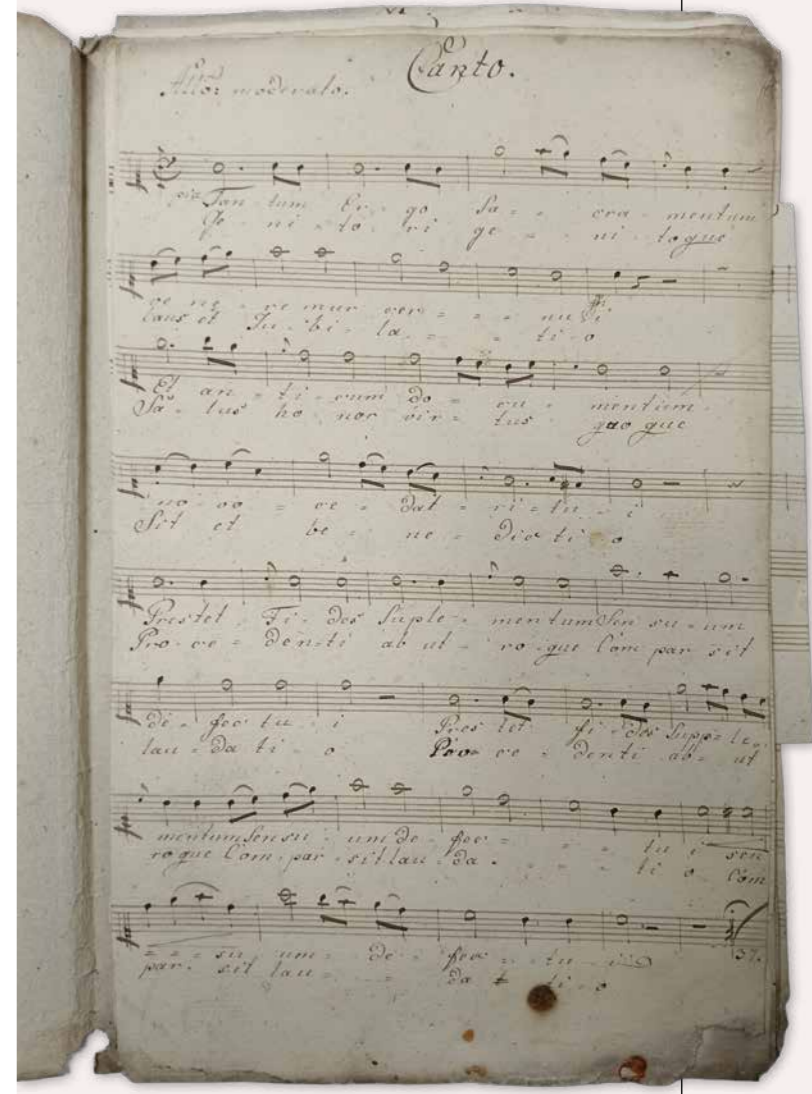 Canto.
Allo: moderato.
Tan - tum Er - go Sa - - cra - mentum
Ge - ni - to - ri ge - - ni - toque
ve ne - re mur cer - - - nu i
laus et Ju - bi - la - - - ti - o
Et an - ti - cum do - cu - mentum.
Sa - lus ho nor vir - tus quo que
no vo = ce = dat - ri - tu - i
Sit et be - ne - dic ti - o
Prestet Fi - des Suple - mentum Sen su - um
Pro - ce = den - ti ab ut - ro - que Com par sit
de - fec tu - i Pres tet fi - des Supp - le -
lau - da ti - o Pro ce - denti ab - ut
mentum Sen su - um de - fec - - - tu i sen
ro que Com - par - sit lau - da - - - ti o Com
= = = su um - de - fec - tu - i
par - sit lau - - da ti - o
37.